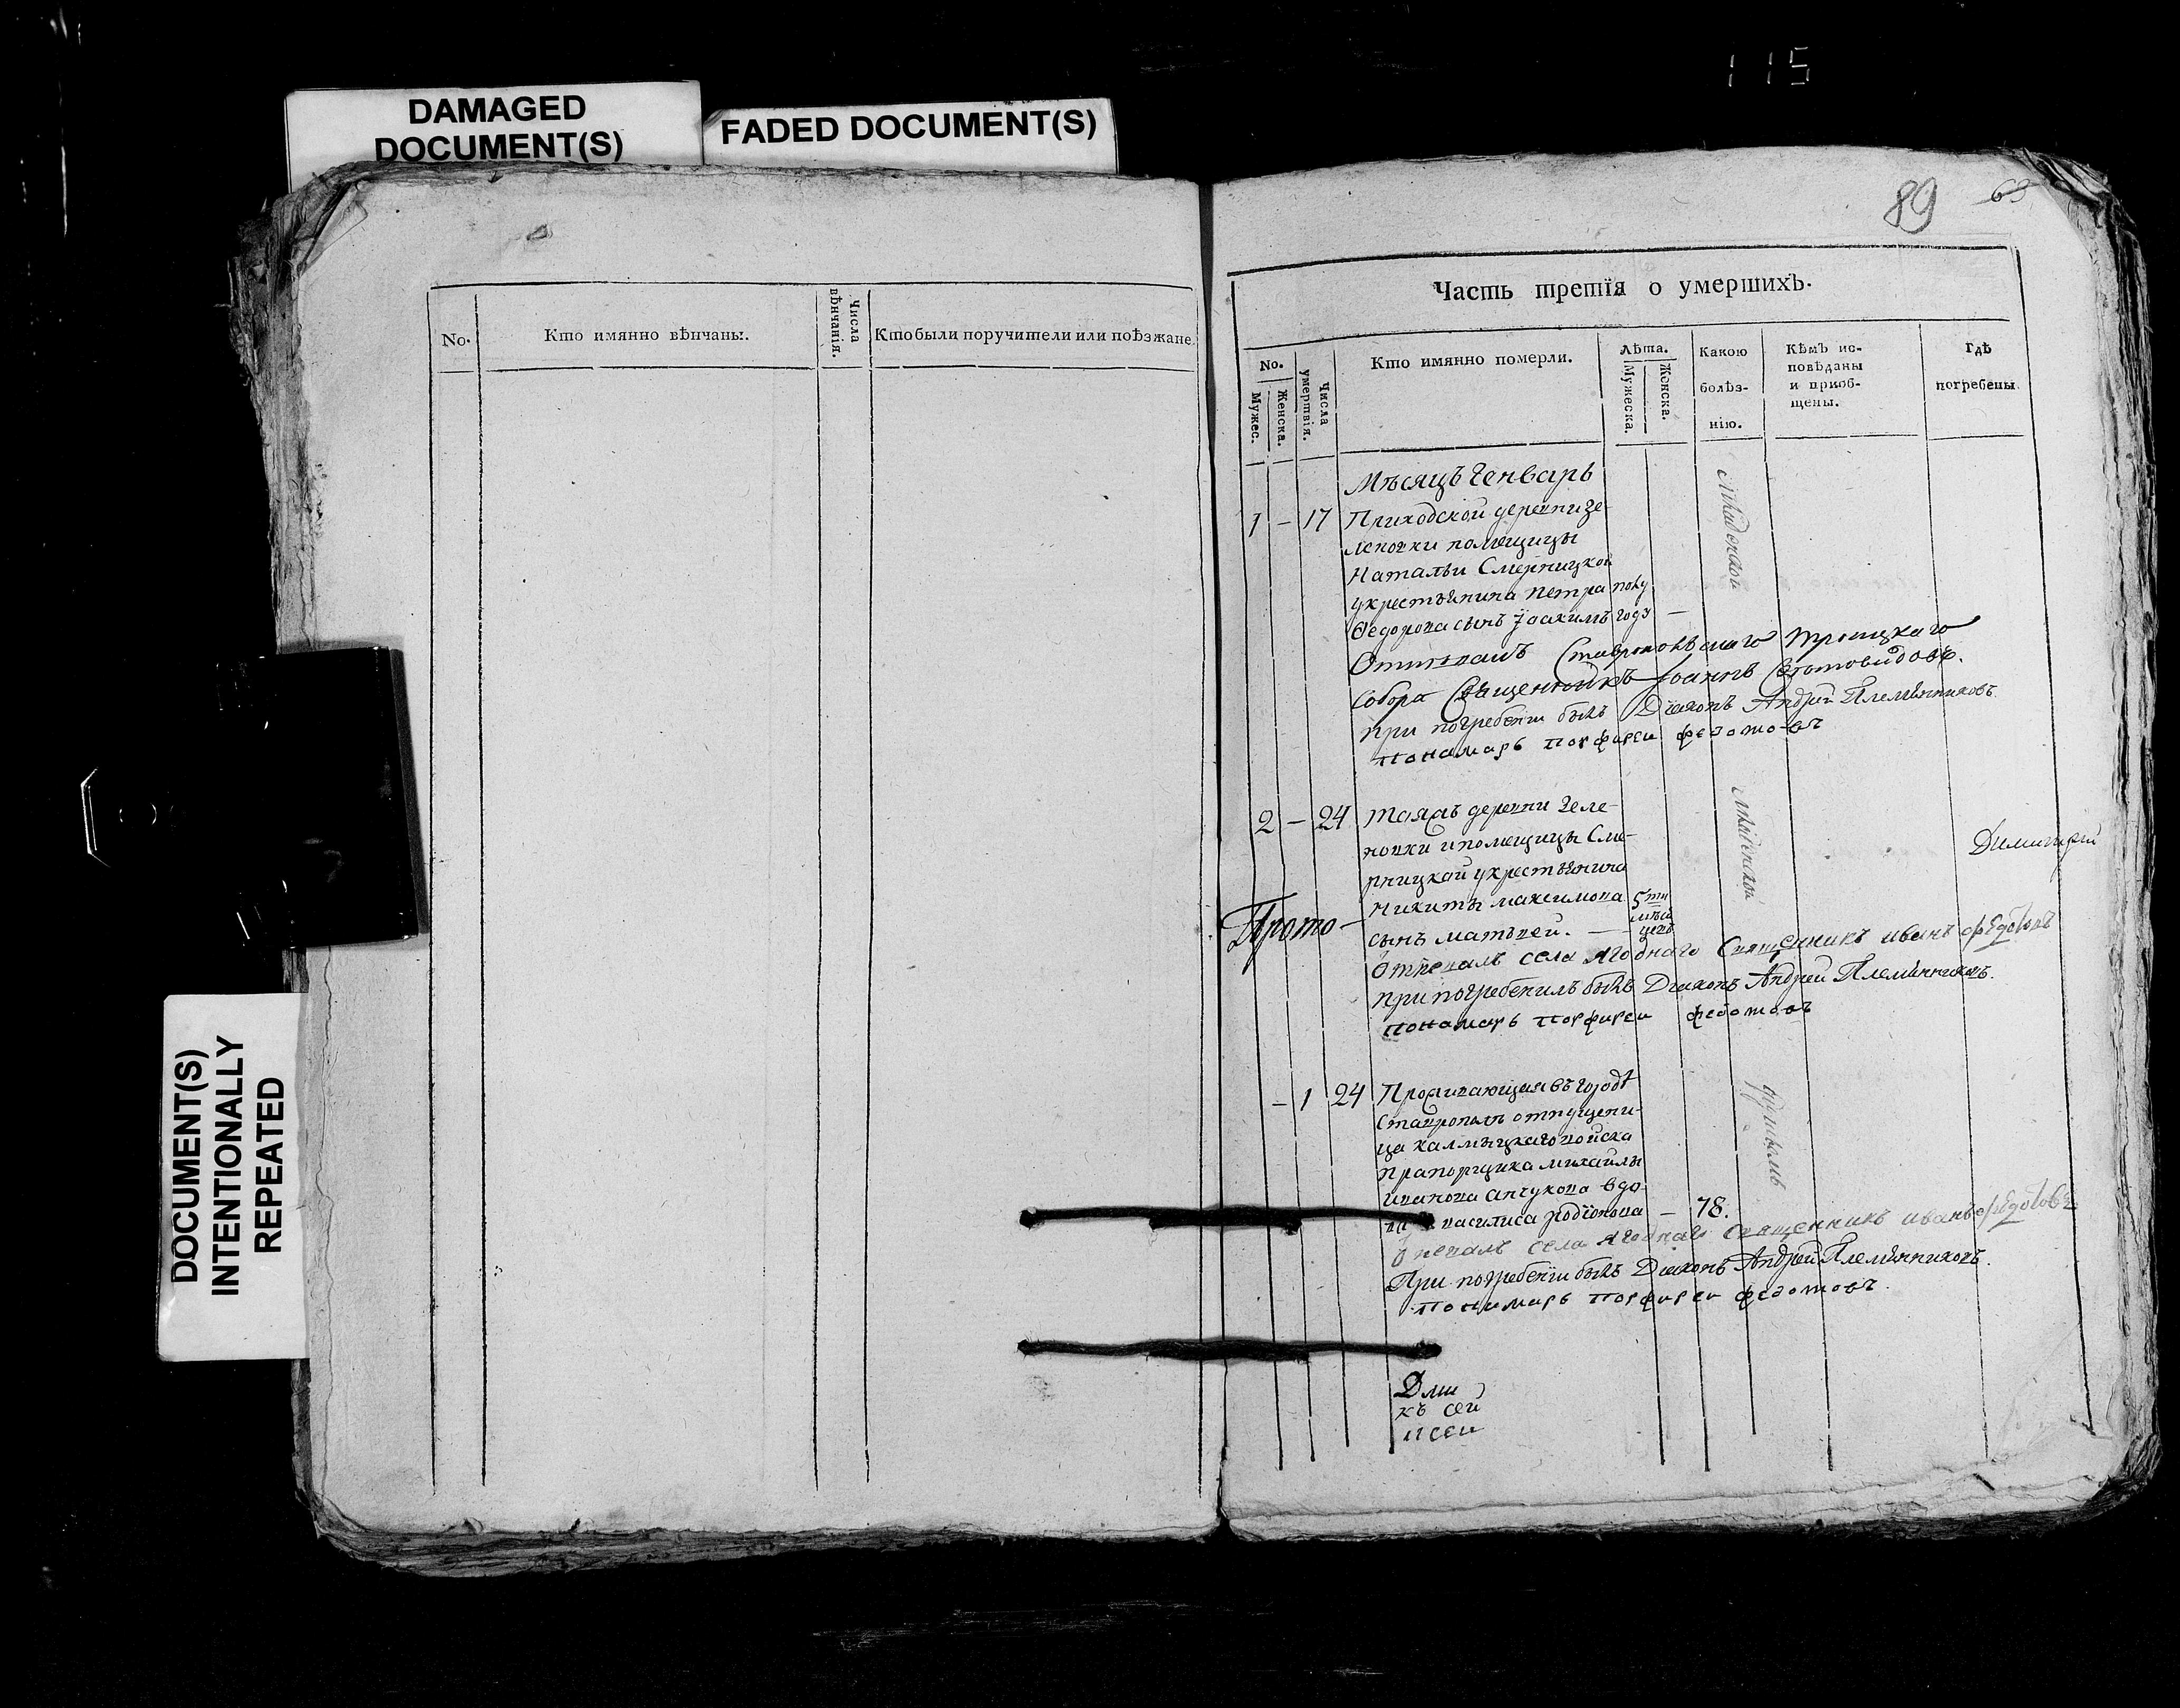 115
DAMAGED
DOCUMENT(S)
FADED DOCUMENT(S)
DOCUMENT(S)
INTENTIONALLY
REPEATED
No.
Кто имянно вѣнчаны.
Числа вѣнчанія.
Кто были поручители или поѣзжане.
89
63
Часть третія о умершихъ.
No.
Мужес.
Женска.
Числа умертвія.
Кто имянно померли.
Лѣта.
Мужеска.
Женска.
Какою
болѣз-
нію.
Кѣмъ ис-
повѣданы
и приоб-
щены.
Гдѣ
погребены.
Мѣсяцъ Генварь
1 – 17 Приходской деревни Зе-
леновки помещицы
Натальи Смерницкой
у крестьянина Петра
Федорова сынъ Іоакимъ полу году –
Младенской
Отпевалъ Ставропольскаго Троицкаго
Собора Священникъ Іоаннъ Святовидовъ.
при погребеніи былъ Дiаконъ Андрей Племянниковъ
Пономарь Порфирей Федотовъ
2 – 24 Тояжъ деревни Зеле-
новки и помещицы Сме-
рницкой у крестьянина
Никиты Максимова
сынъ Матвей. – 5ти
Младенской
Прото-
Димитрий
Отпевалъ села Ягоднаго Священникъ Иванъ Федотовъ
При погребенiи былъ Дiаконъ Андрей Племянниковъ.
Пономарь Порфирей Федотовъ
– 1 24 Проживающая въ городе
Ставрополе отпущени-
ца калмыцкаго войска
прапорщика Михайлы
Иванова вдо-
ва Василиса Родiонова – 78.
села Ягоднаго Священникъ Иванъ Федотовъ
При погребенiи былъ Дiаконъ Андрей Племянниковъ.
Пономарь Порфирей Федотовъ.
къ сей